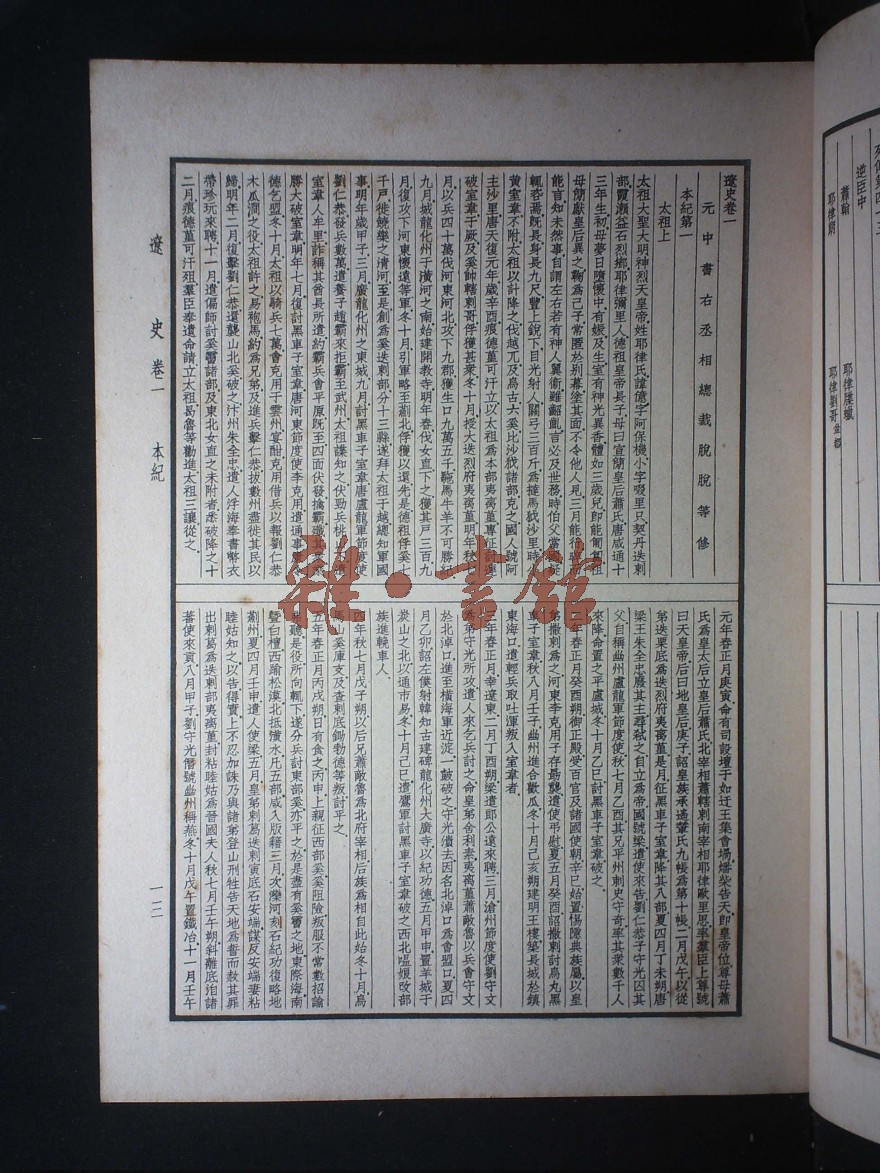 遼史卷一
元中書右丞相總裁脫脫等修
本紀第一
太祖上
太祖大聖大明神烈天皇帝姓耶律氏諱億字阿保機小字啜里只契丹迭剌
部霞瀨益石烈鄉耶律彌里人德祖皇帝長子母曰宣簡皇后蕭氏唐咸通十
三年生初母夢日墮懷中有娠及生室有神光異香體如三歲兒即能匍匐祖
母簡獻皇后異之鞠為己子常匿於別幕塗其面不令他人見三月能行
能言知未然事自謂左右若有神人翼衛雖齠齔言必及世務時伯父當國疑
輒咨焉既長身長九尺豐上銳下目光射人關弓三百斤為撻馬狘沙里時小
黃室韋不附太祖以計降之伐越兀及烏古六奚比沙狘諸部克之國人號阿
主沙里唐天復元年歲辛酉痕德菫可汗立以太祖為本部夷离菫專征討連
破室韋于厥及奚帥轄剌哥俘獲甚眾冬十月授大迭烈府夷离菫明年秋七
月以兵四十萬伐河東河北攻下九郡獲生口九萬五千駝馬牛羊不可勝紀
九月城龍化州于潢河之南始建開教寺明年春伐女直下之獲其戶三百九
月復攻下河東懷遠等軍冬十月引軍略至薊北俘獲以還先是德祖俘奚七
千戶徙饒樂之清河至是創為奚迭剌部分十三縣遂拜太祖于越總知軍國
事明年歲甲子三月廣龍化州之東城九月討黑車子室韋唐盧龍軍節度使
劉仁恭發兵數萬遣養子趙霸來拒霸至武州太祖諜知之伏勁兵桃山下遣
室韋人牟里詐稱其酋長所遣約霸兵會平原既至四面伏發擒霸殲其眾乘
勝大破室韋明年七月復討黑車子室韋唐河東節度使李克用遣通事康令
德乞盟冬十月太祖以騎兵七萬會克用于雲州宴酣克用借兵以報劉仁恭
木瓜澗之役太祖許之易袍馬約為兄弟及進兵擊仁恭拔數州盡徙其民以
歸明年二月復擊劉仁恭還襲山北奚破之汴州朱全忠遣人浮海奉書幣衣
帶珍玩來聘十一月遣偏師討奚霫諸部及東北女直之未附者悉破降之十
二月痕德菫可汗殂羣臣奉遺命請立太祖曷魯等勸進太祖三讓從之
元年春正月庚寅命有司設壇于如迂王集會堝燔柴告天即皇帝位尊母蕭
氏為皇太后立皇后蕭氏北宰相蕭轄剌南宰相耶律歐里思率羣臣上尊號
曰天皇帝后曰地皇后庚子詔皇族承遙輦氏九帳為第十帳二月戊午以從
弟迭栗底為迭烈府夷离菫是月征黑車子室韋降其八部夏四月丁未朔唐
梁王朱全忠廢其主尋弒之自立為帝國號梁遣使來告劉仁恭子守光囚其
父自稱幽州盧龍軍節度使秋七月乙酉其兄平州刺史守奇率其眾數千人
來降命置之平盧城冬十月乙巳討黑車子室韋破之
二年春正月癸酉朔御正殿受百官及諸國使朝辛巳始置惕隱典族屬以皇
弟撒剌為之河東李克用卒子存勗襲遣使弔慰夏五月癸酉詔撒剌討烏丸黑
車子室韋秋八月壬子幽州進合歡瓜冬十月己亥朔建明王樓築長城於鎮
東海口遣輕兵取吐渾叛入室韋者
三年春正月幸遼東二月丁酉朔梁遣郎公遠來聘三月滄州節度使劉守文
為弟守光所攻遣人來乞兵討之命皇弟舍利素夷离菫蕭敵魯以兵會守文
於北淖口進至橫海軍近淀一鼓破之守光潰去因名北淖口為會盟口夏四
月乙卯詔左僕射韓知古建碑龍化州大廣寺以紀功德五月甲申置羊城于
炭山之北以通市易冬十月己巳遣鷹軍討黑車子室韋破之西北嗢娘改部
族進輓車人
四年秋七月戊子朔以后兄蕭敵魯為北府宰相后族為相自此始冬十月烏
馬山奚庫支及查剌底鋤勃德等叛討平之
五年春正月丙戌朔日有食之丙申上親征西部奚奚阻險叛服不常數招諭
弗聽是役所向輒下遂分兵討東部奚亦平之於是盡有奚霫之地東際海南
暨白檀西踰松漠北抵潢水凡五部咸入版籍三月次灤河刻石紀功復略地
薊州夏四月壬申遣人使梁五月皇弟剌葛迭剌寅底石安端謀反安端妻粘
睦姑知之以告得實上不忍加誅乃與諸弟登山刑牲告天地為誓而赦其罪
出剌葛為迭剌部夷离菫封粘睦姑為晉國夫人秋七月壬午朔斜離底洎諸
蕃使來貢八月甲子劉守光僭號幽州稱燕冬十月戊午置鐵冶十一月壬午
遼史卷一 本紀
一二
雜·書館
逆臣中
蕭翰
耶律牒蠟
耶律朗
耶律劉哥